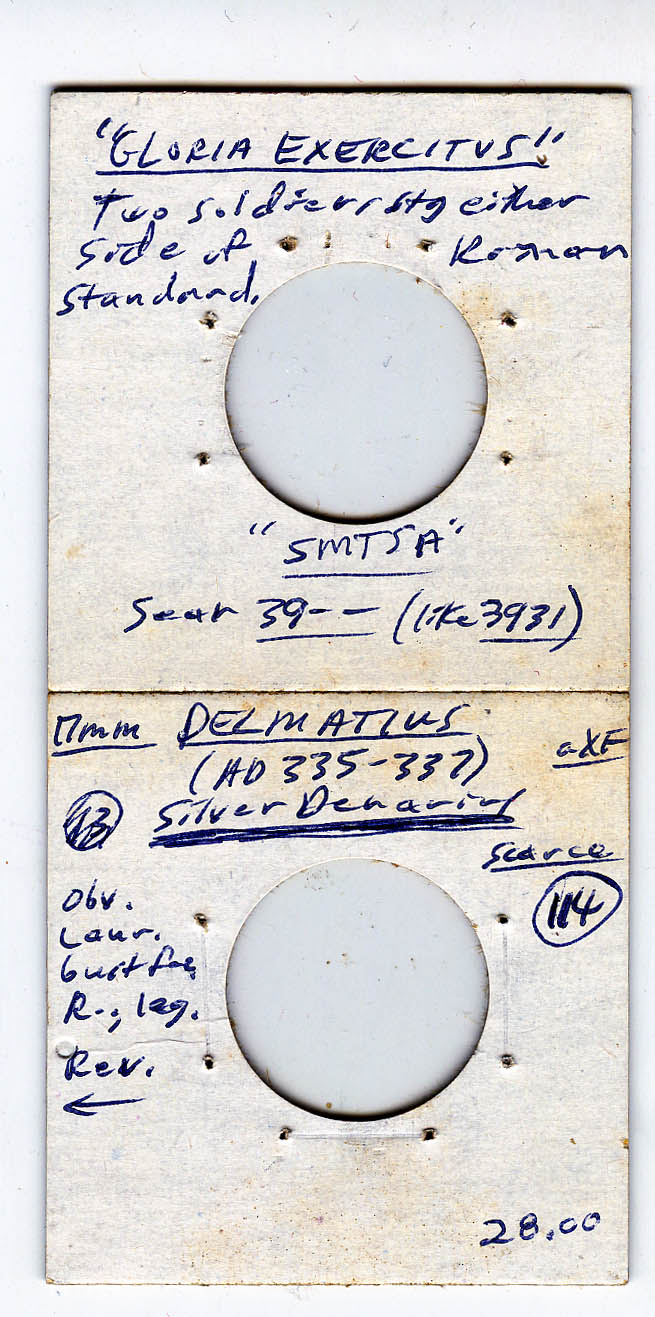 "GLORIA EXERCITVS!"
Two soldiers, stg either
side of Roman
standard.
"SMTSA"
Sear 39-- (like 3931)
17mm DELMATIUS aXF
(AD 335-337)
13 Silver Denarius
Scarce
Obv. 114
Laur.
bust fac
R., leg.
Rev.
←
28.00